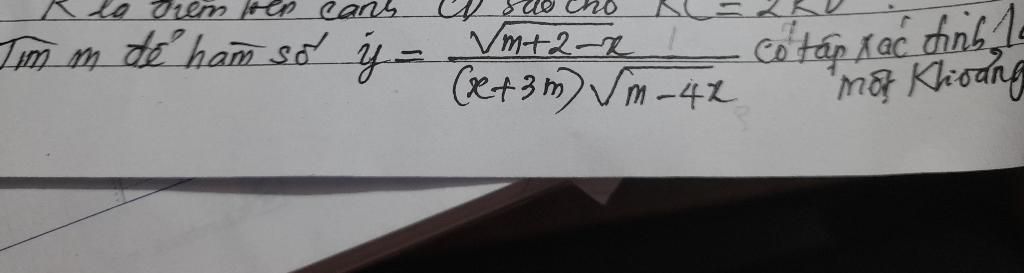 K là điểm trên cạnh CD sao cho KC = 2KD.
Tìm m để hàm số y = \frac{\sqrt{m+2-x}}{(x+3m)\sqrt{m-4x}} có tập xác định là
một khoảng